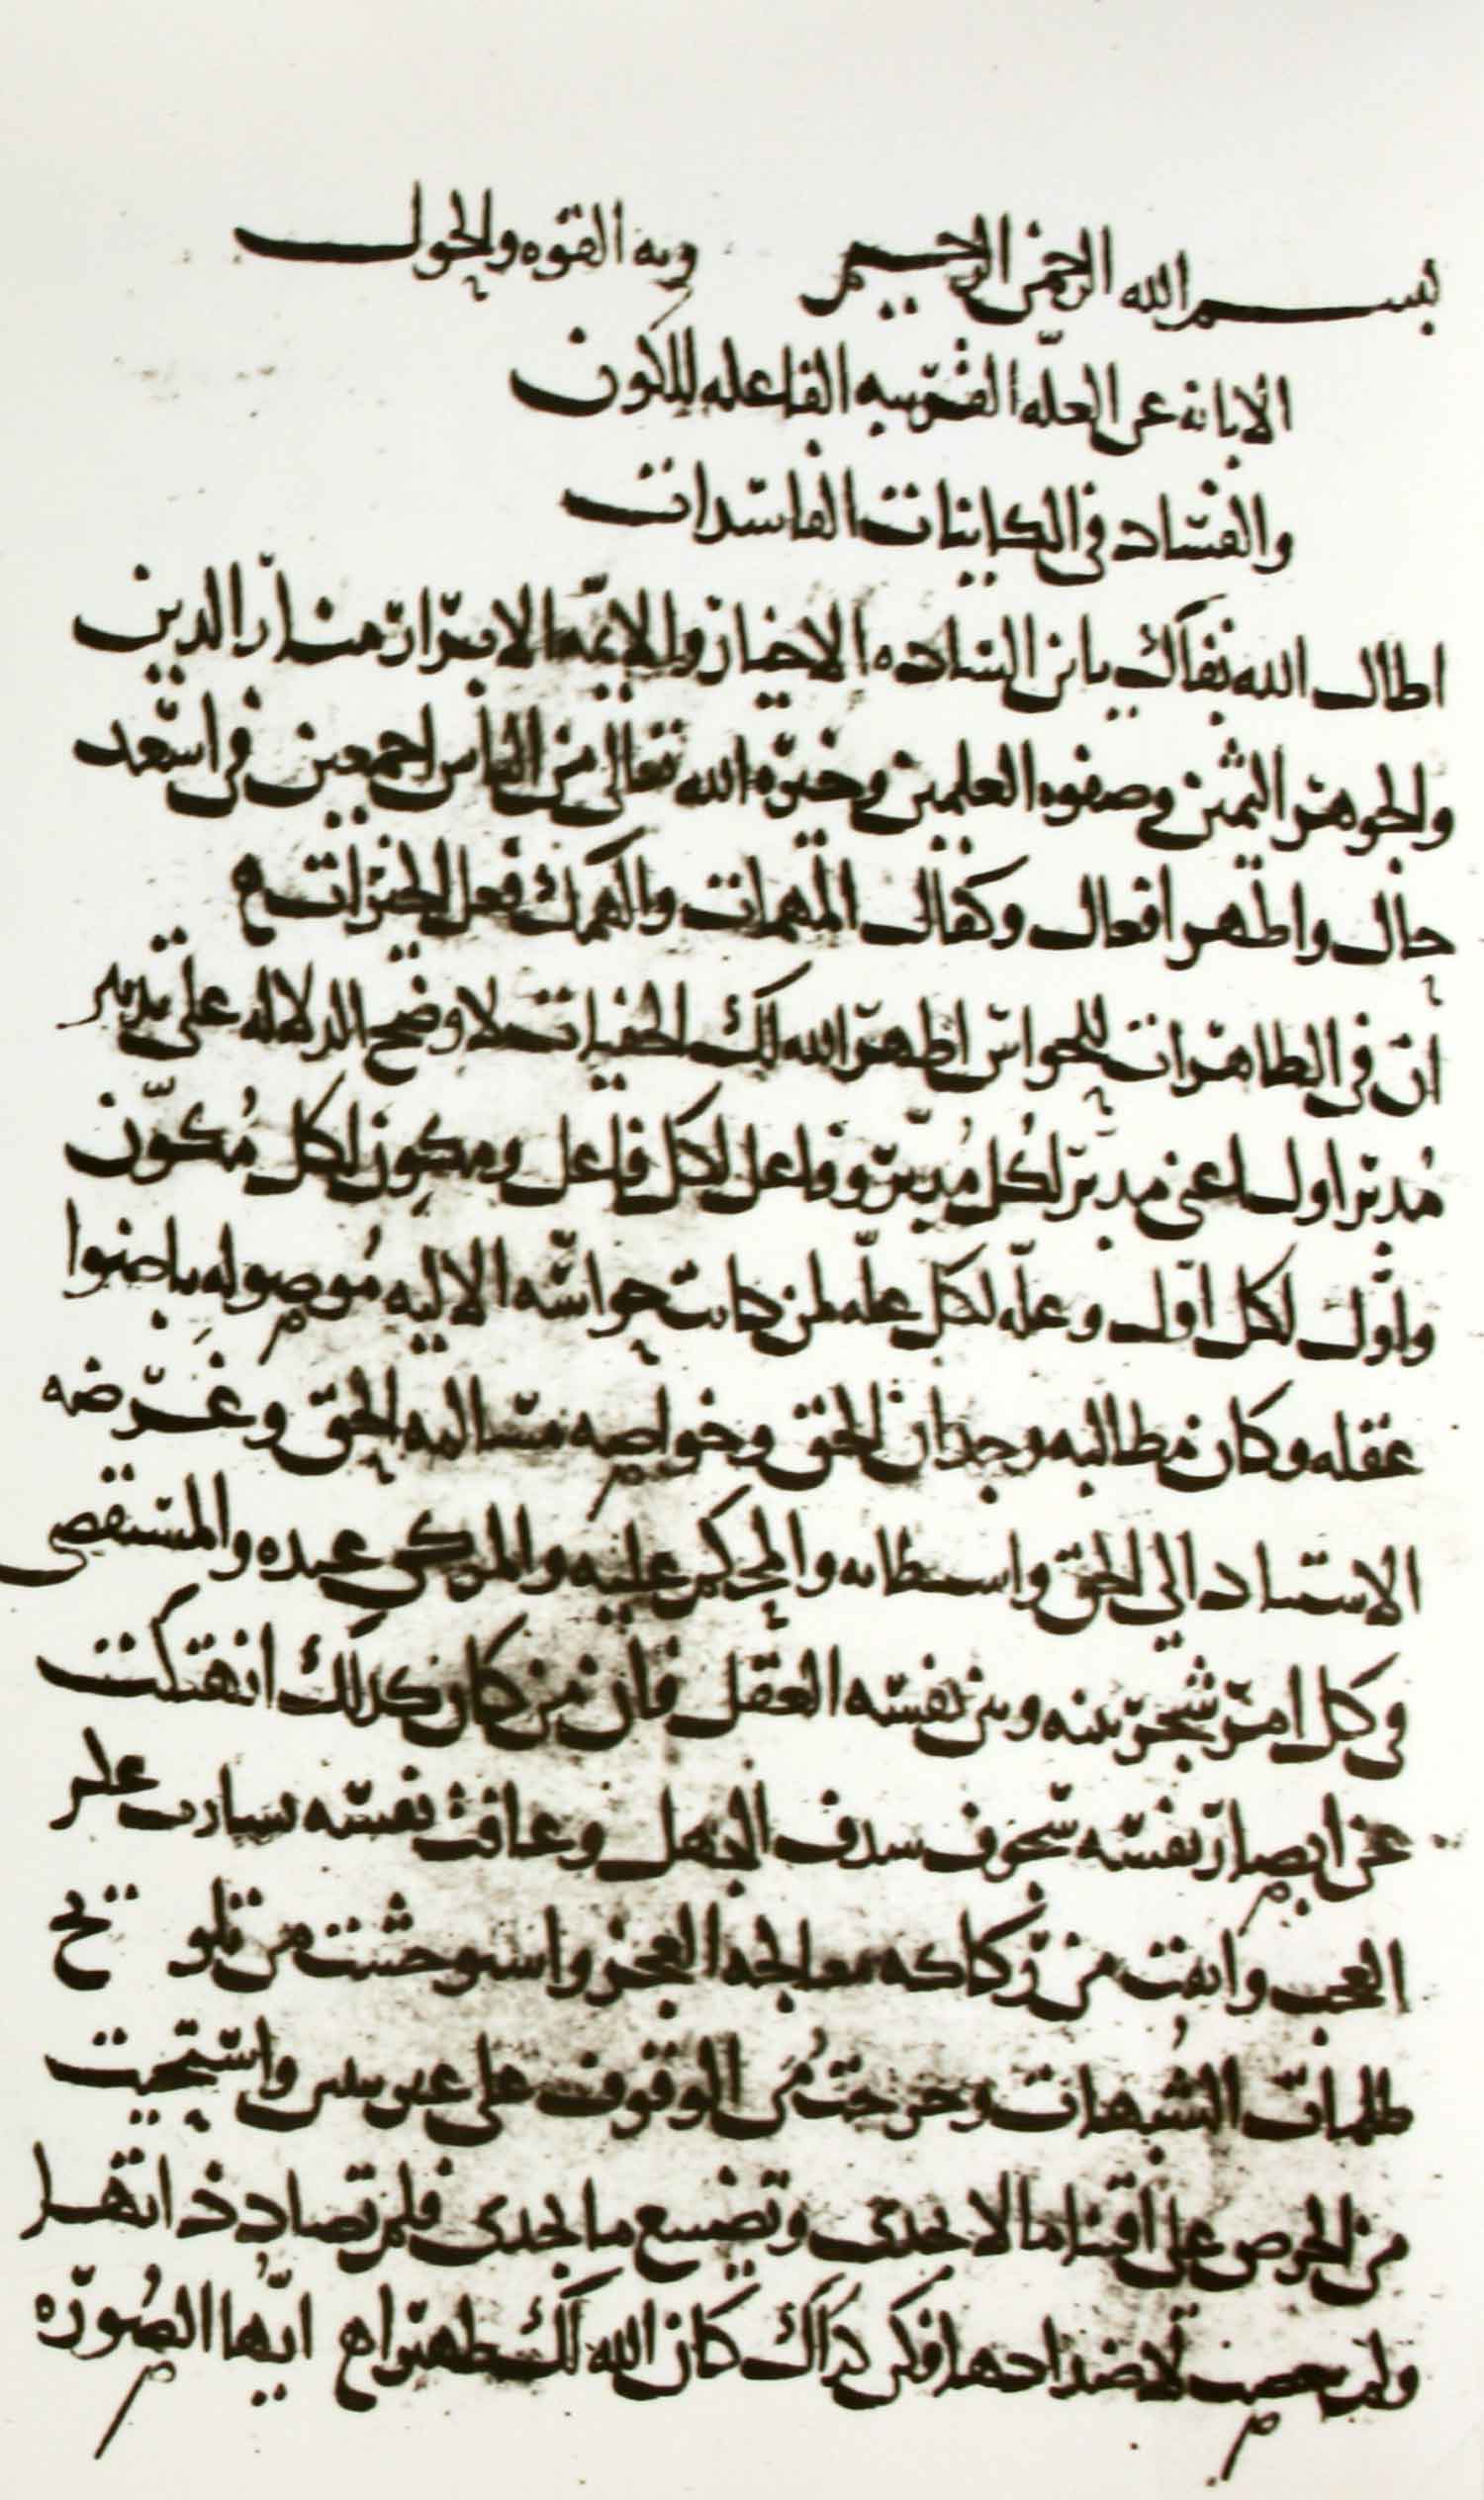 بسم الله الرحمن الرحيم وبه القوه والحول
الابانه عن العلّه القريبه الفاعله للكون
والفساد في الكاينات الفاسدات
اطال الله بقاك يا بن الساده الاخيار والايمّه الابرار منار الدين
والجوهر الثمين وصفوه العلمين وخيره الله تعالى من الناس اجمعين في اسعد
حال واطهر افعال وكفاك المهمات والهمك فعل الخيرات
ان في الظاهرات للحواس اظهر الله لك الخفيات لاوضح الدلاله على تدبير
مُدبر اول اعني مدبر لكُل مُدبر وفاعل لكل فاعل ومكون لكل مُكوّن
واول لكل اوّل وعلّه لكل علّه لمن كانت حواسّه الاليه مُوصوله باضوا
عقله وكان مطالبه وجدان الحق وخواصه مساله الحق وغرضه
الاسناد الى الحق واسـطانه والحكم عليه والمزكي عنده والمستقصى
في كل امر شجر بينه وبين نفسه العقل فان من كان كذلك انهتكت
عن ابصار نفسه سجوف سدف الجهل وعافت نفسه
العجب وانفت من زكاكه معالجه العجز واسوحشت من تلو تح
ظلمات الشبهات وخرجت مُن الوقوف على غير واستحيت
من الحرص على اقتنا ما لا تجدى وتضييع ما تجدى فلم تضاد ذاتها
ولم تعصب لاضدادها فكن كذاك كان الله لك ظهيرا ايّها الصُورّه